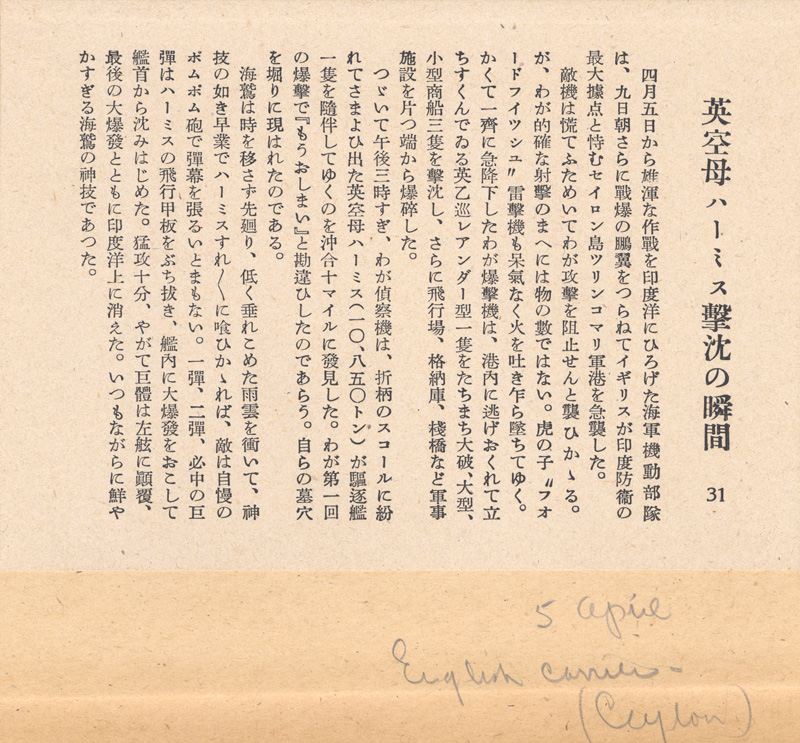 英空母ハーミス擊沈の瞬間 31
四月五日から雄渾な作戰を印度洋にひろげた海軍機動部隊
は、九日朝さらに戰爆の鵬翼をつらねてイギリスが印度防衞の
最大據点と恃むセイロン島ツリンコマリ軍港を急襲した。
敵機は慌てふためいてわが攻擊を阻止せんと襲ひかゝる。
が、わが的確な射擊のまへには物の數ではない。虎の子〃フオ
ードフイツシユ〃雷擊機も呆氣なく火を吐き乍ら墜ちてゆく。
かくて一齊に急降下したわが爆擊機は、港內に逃げおくれて立
ちすくんでゐる英乙巡レアンダー型一隻をたちまち大破、大型、
小型商船三隻を擊沈し、さらに飛行場、格納庫、棧橋など軍事
施設を片つ端から爆碎した。
つゞいて午後三時すぎ、わが偵察機は、折柄のスコールに紛
れてさまよひ出た英空母ハーミス(一〇、八五〇トン)が驅逐艦
一隻を隨伴してゆくのを沖合十マイルに發見した。わが第一回
の爆擊で『もうおしまい』と勘違ひしたのであらう。自らの墓穴
を堀りに現はれたのである。
海鷲は時を移さず先廻り、低く垂れこめた雨雲を衝いて、神
技の如き早業でハーミスすれ〳〵に喰ひかゝれば、敵は自慢の
ボムボム砲で彈幕を張るいとまもない。一彈、二彈、必中の巨
彈はハーミスの飛行甲板をぶち拔き、艦內に大爆發をおこして
艦首から沈みはじめた。猛攻十分、やがて巨體は左舷に顚覆、
最後の大爆發とともに印度洋上に消えた。いつもながらに鮮や
かすぎる海鷲の神技であつた。
5 April
English carrier -
(Ceylon)